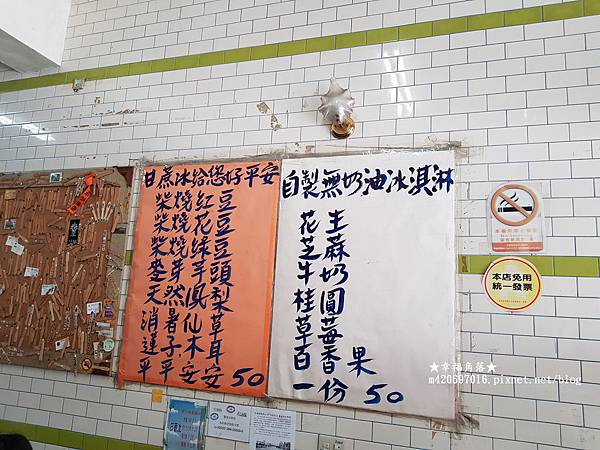 甘蔗冰給您好平安
柴燒紅豆
柴燒花豆
柴燒綠豆
麥芽芋頭
天然鳳梨
消暑仙草
蓮子木耳
平平安安 50
自製無奶油冰淇淋
花生
芝蔴
牛奶
桂圓
草莓
百香果
一份 50
本店免用
統一發票
★幸福角落★
m420697016.pixnet.net/blog